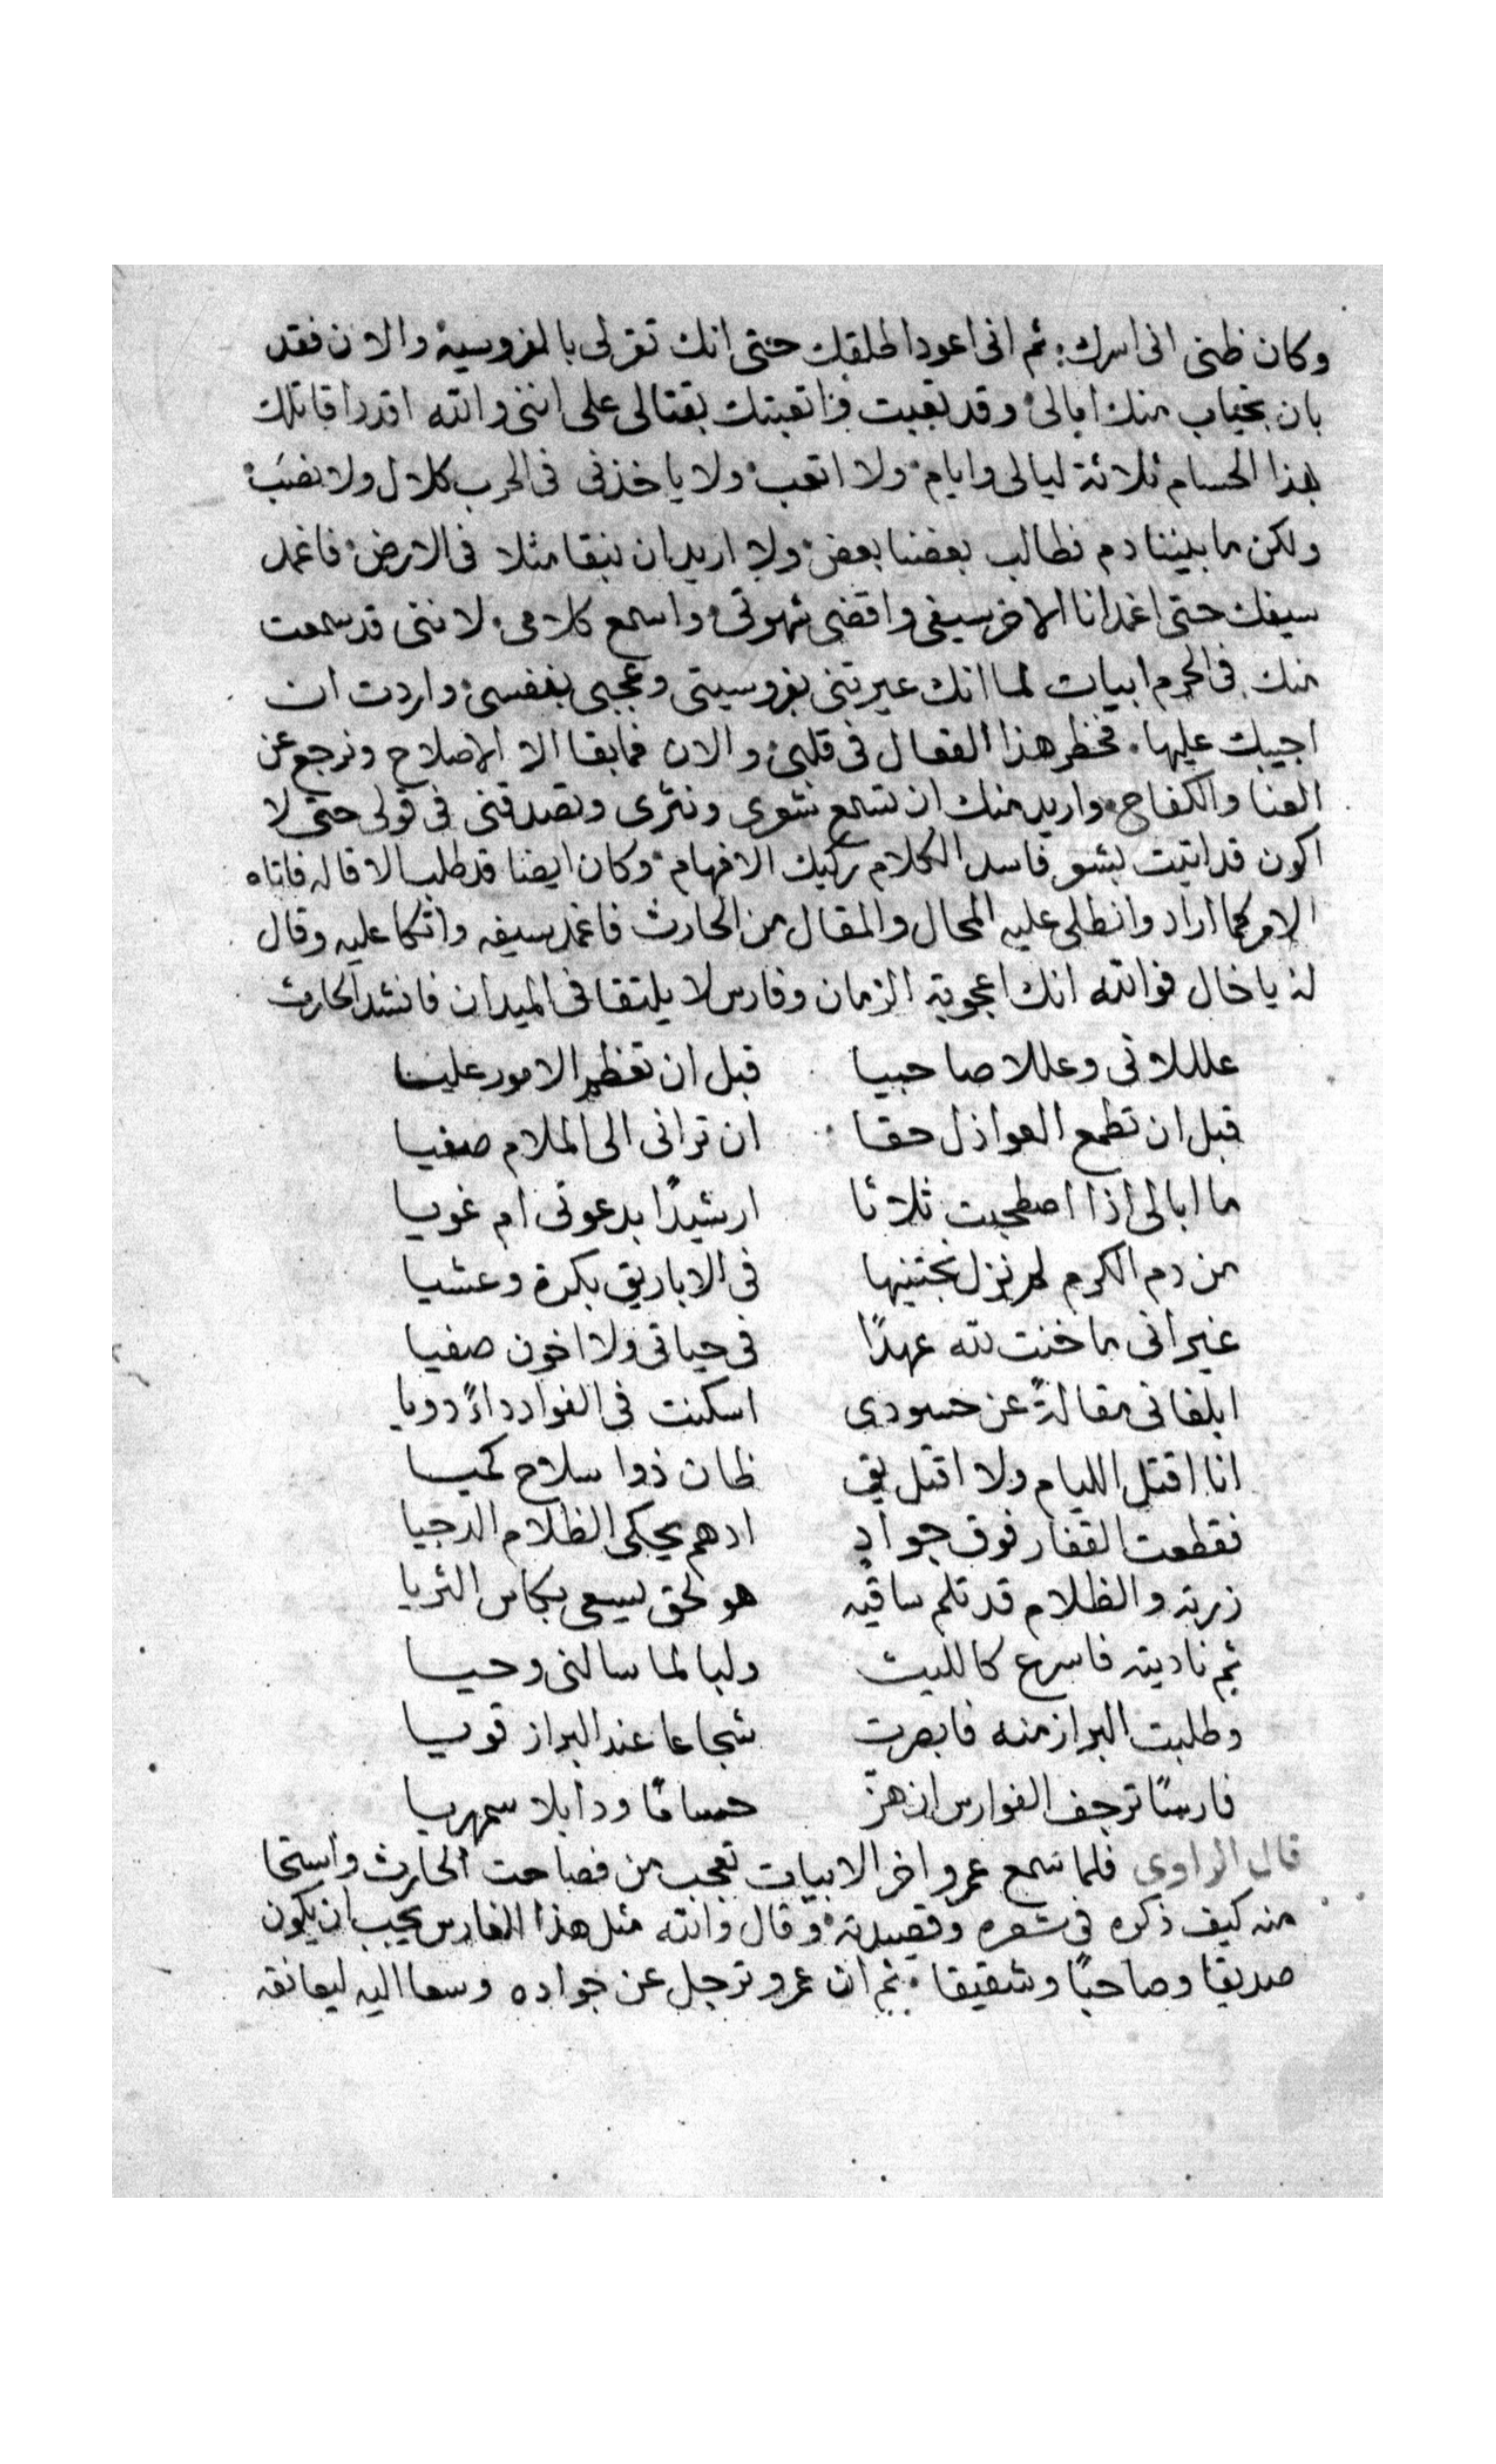 وكان ظنى انى اسرك ثم انى اعود اطلقك حتى انك تقر لى بالفروسية والان فقد
بان بخياب منك امالى وقد تعبت واتعبتك بقتالى على اننى والله اقدر اقاتلك
بهذا الحسام ثلاثة ليالى وايام ولا اتعب ولا ياخذنى فى الحرب كلال ولا نصَب
ولكن ما بيننا دم نطالب بعضنا بعض ولا اريد ان نبقا مثلا فى الارض فاغمد
سيفك حتى اغمد انا الاخر سيفى واقضى شهوتى واسمع كلامى لاننى قد سمعت
منك فى الحرم ابيات لما انك عيرتنى بفروسيتى وعجبى بنفسى واردت ان
اجيبك عليها فخطر هذا الفعال فى قلبى والان فمابقا الا الاصلاح ونرجع عن
العنا والكفاح واريد منك ان تسمع شعرى ونثرى وتصدقنى فى قولى حتى لا
اكون قد اتيت بشو فاسد الكلام ركيك الافهام وكان ايضا قد طلب الاقاله فاتاه
الامر كما اراد وانطلى عليه المحال والمقال من الحارث فاغمد سيفه واتكا عليه وقال
له يا خال فوالله انك اعجوبة الزمان وفارس لا يلتقا فى الميدان فانشد الحارث
عللانى وعللا صاحبيا قبل ان تعظم الامور عليا
قبل ان تطمع العواذل حقا ان ترانى الى الملام صغيا
ما ابالى اذا اصطحبت ثلاثا ارشيدًا يدعونى ام غويا
من دم الكرم لم نزل نجتنيها فى الاباريق بكرة وعشيا
غير انى ما خنت لله عهدًا فى حياتى ولا اخون صفيا
ابلغانى مقالةً عن حسودى اسكنت فى الفواد داءً دويا
انا اقتل الليام ولا اقتل ذوا سلاح كميا
فقطعت القفار فوق جوادٍ ادهم يحكى الظلام الدجيا
زرته والظلام قد تلم ساقيه هو لحق يسعى بكاس الثريا
ثم ناديته فاسرع كالليث ولبا لما سالنى وحيا
وطلبت البراز منه فابصرت شجاعا عند البراز قويا
فارسًا ترجف الفوارس ان هزّ حسامًا وذابلا سمهريا
قال الراوى فلما سمع عمرو اخر الابيات تعجب من فصاحت الحارث واستحا
منه كيف ذكره فى شعره وقصيدته وقال والله مثل هذا الفارس يجب ان يكون
صديقا وصاحبًا وشقيقا ثم ان عمرو ترجل عن جواده وسعا اليه ليعانقه